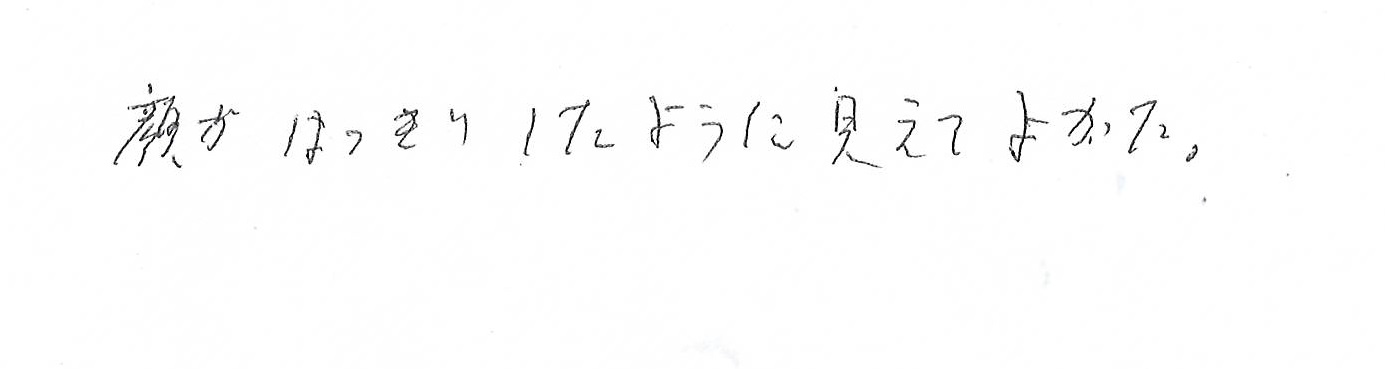 顔がはっきりしたように見えてよかった。